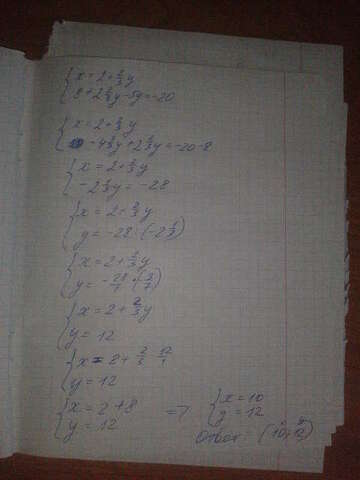 {x = 2 + 2/3 y
{8 + 2 2/3 y - 5y = -20
{x = 2 + 2/3 y
{-4 3/3 y + 2 2/3 y = -20 - 8
{x = 2 + 2/3 y
{-2 1/3 y = -28
{x = 2 + 2/3 y
{y = -28 : (-2 1/3)
{x = 2 + 2/3 y
{y = -28/1 · (-3/7)
{x = 2 + 2/3 y
{y = 12
{x = 2 + 2/3 · 12/1
{y = 12
{x = 2 + 8
{y = 12
=> {x = 10
{y = 12
Ответ (10; 12)